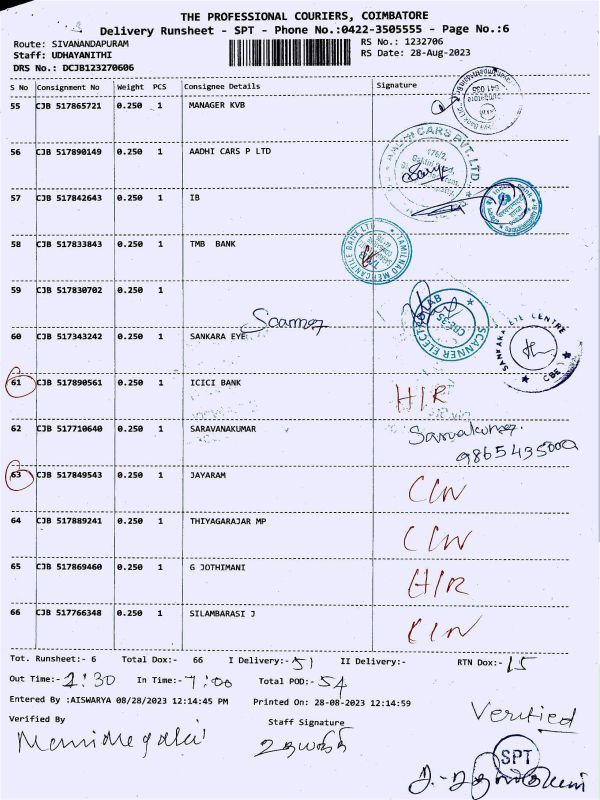 THE PROFESSIONAL COURIERS, COIMBATORE
Delivery Runsheet - SPT - Phone No.:0422-3505555 - Page No.:6
Route: SIVANANDAPURAM RS No.: 1232706
Staff: UDHAYANITHI RS Date: 28-Aug-2023
DRS No.: DCJB123270606
S No Consignment No Weight PCS Consignee Details Signature
55 CJB 517865721 0.250 1 MANAGER KVB
56 CJB 517890149 0.250 1 AADHI CARS P LTD
CARS PVT. LTD
176/2,
57 CJB 517842643 0.250 1 IB
58 CJB 517833843 0.250 1 TMB BANK
TAMILNAD MERCANTILE BANK LTD
59 CJB 517830702 0.250 1
SCANNER ELECTRO LAB
CBE-35
60 CJB 517343242 0.250 1 SANKARA EYE
SANKARA EYE CENTRE
CBE
61 CJB 517890561 0.250 1 ICICI BANK H/R
62 CJB 517710640 0.250 1 SARAVANAKUMAR
9865435000
63 CJB 517849543 0.250 1 JAYARAM C/N
64 CJB 517889241 0.250 1 THIYAGARAJAR MP C/N
65 CJB 517869460 0.250 1 G JOTHIMANI H/R
66 CJB 517766348 0.250 1 SILAMBARASI J C/N
Tot. Runsheet:- 6 Total Dox:- 66 I Delivery:- 51 II Delivery:- RTN Dox:- 15
Out Time:- 2:30 In Time:- 7:00 Total POD:- 54
Entered By :AISWARYA 08/28/2023 12:14:45 PM Printed On: 28-08-2023 12:14:59
Verified By Staff Signature Verified
உதயநிதி
SPT